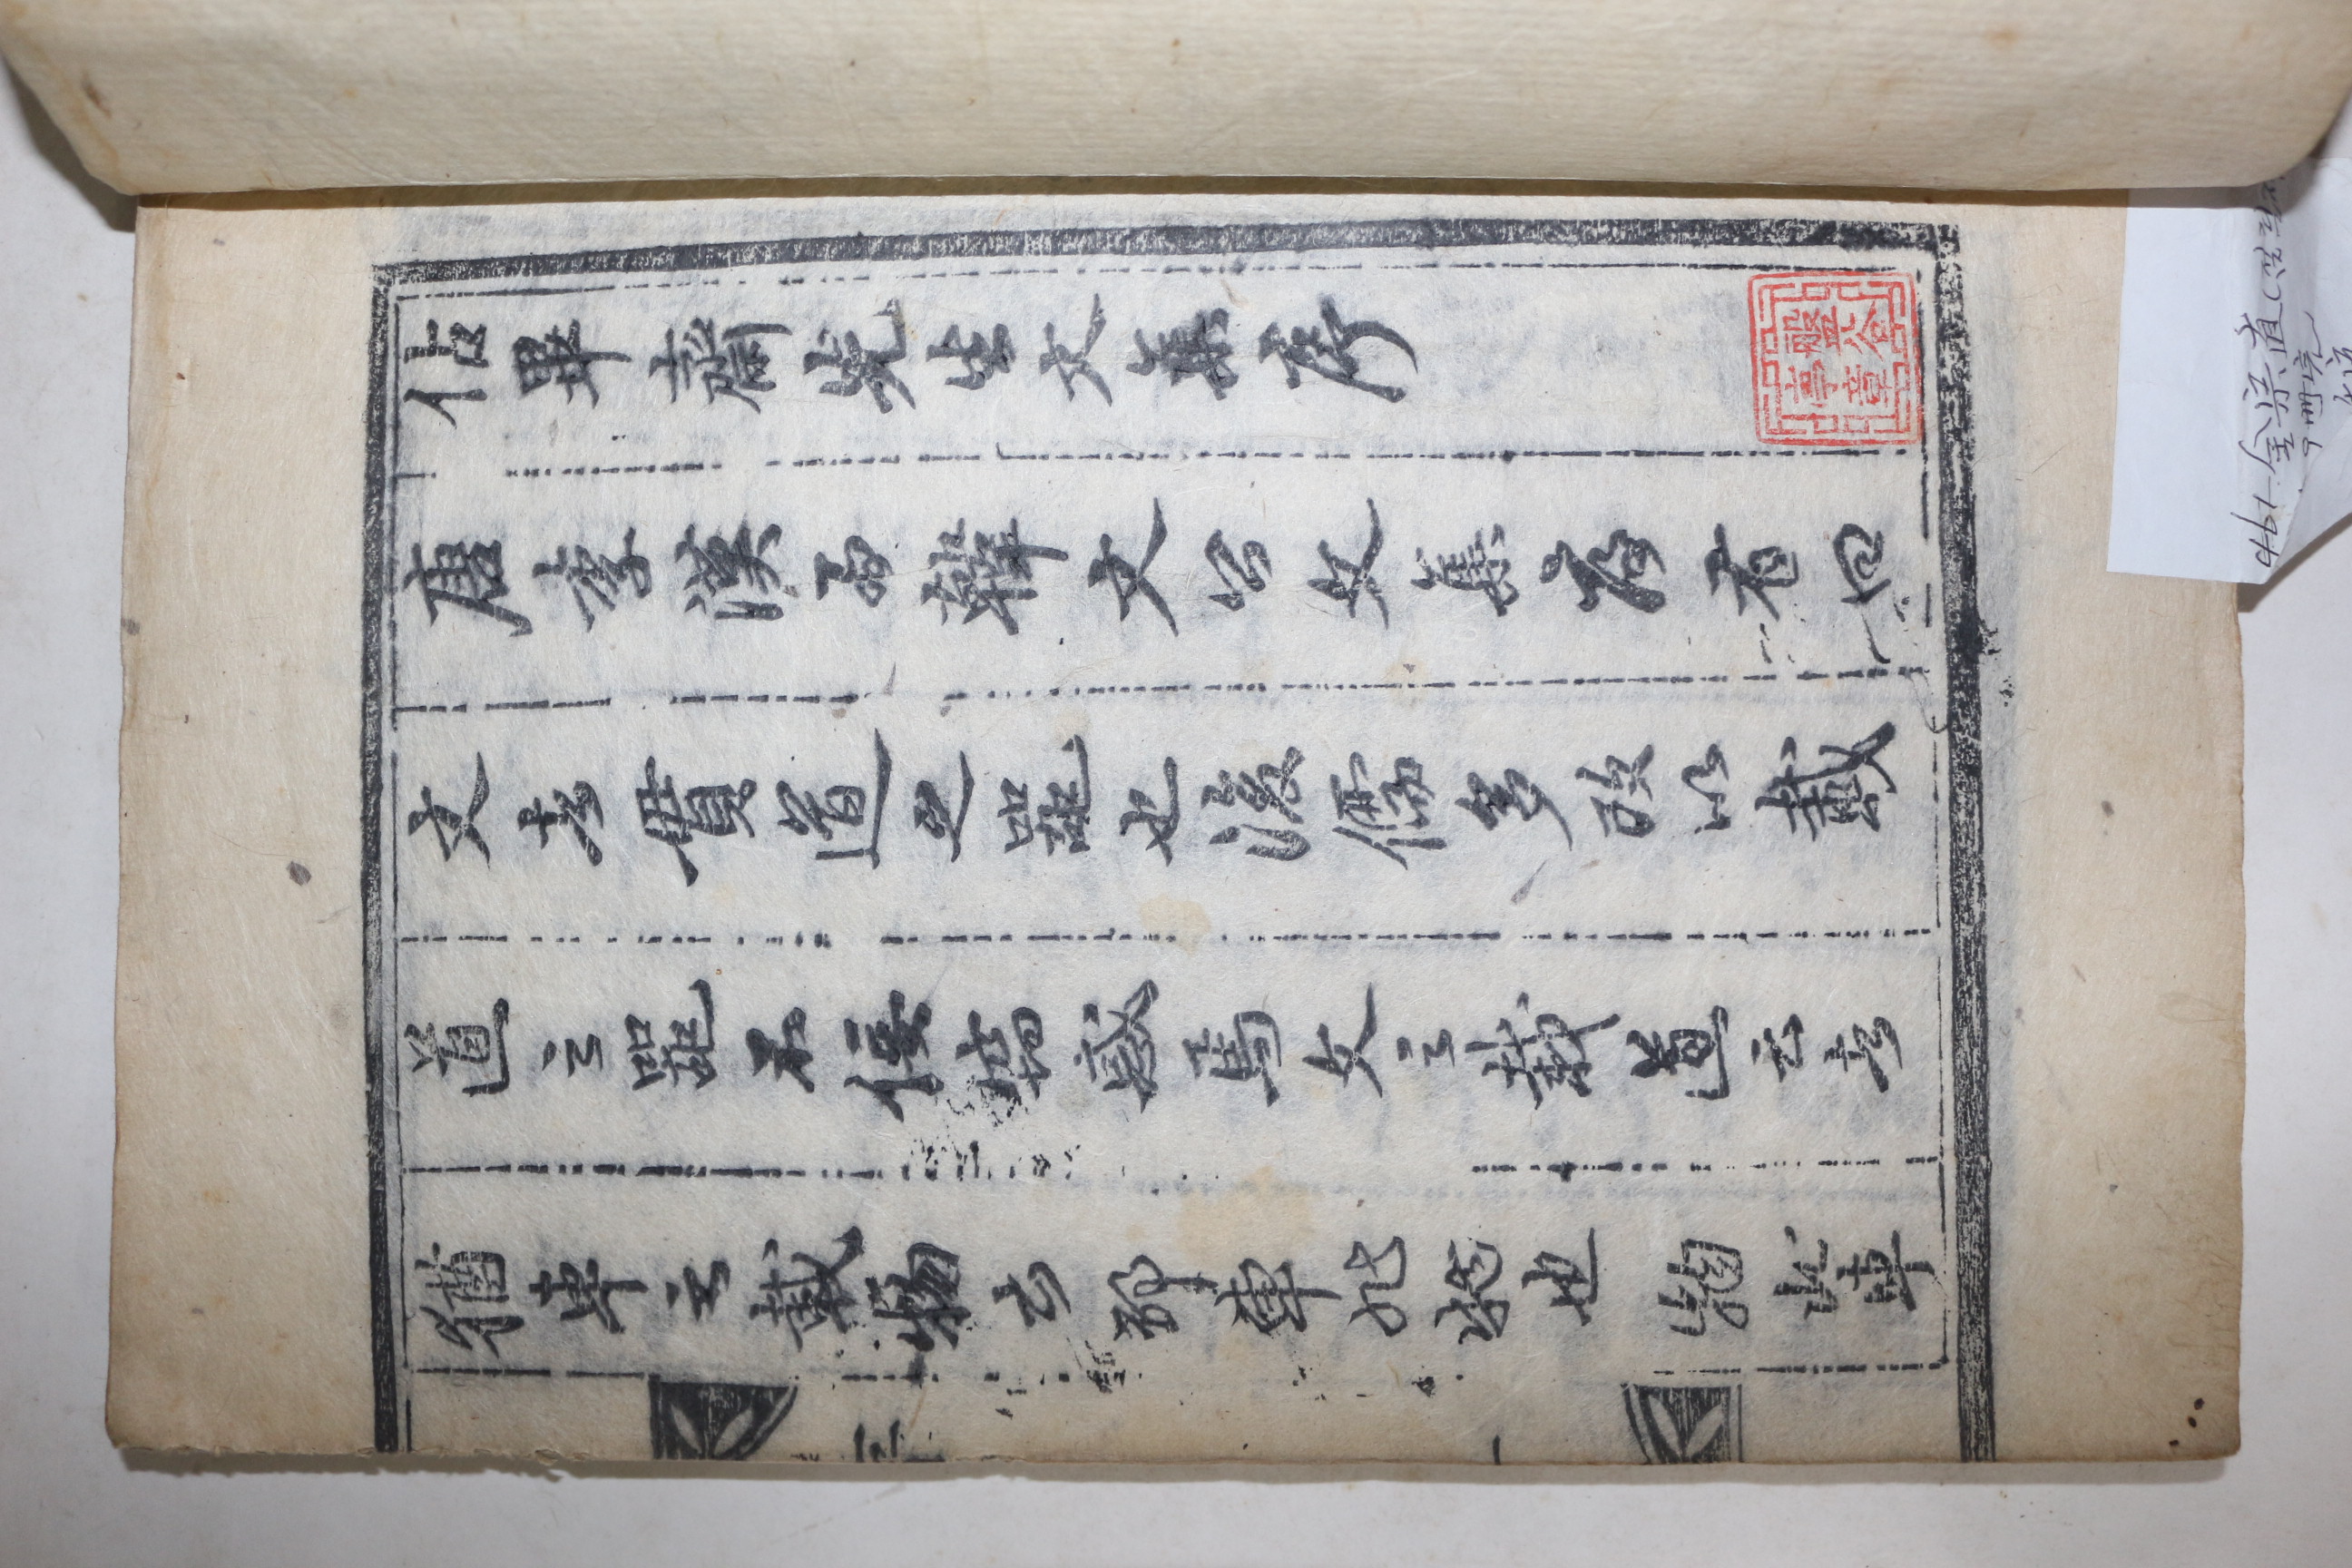 佔畢齋先生文集序
唐李漢爲韓文公文集序有曰
文者貫道之器也後儒多改以載
道之器不佞竊惑焉文之載道云者
猶車之載物云邪車非物也物非車
盤谷
亭章
461 金宗直(점필재
9冊完